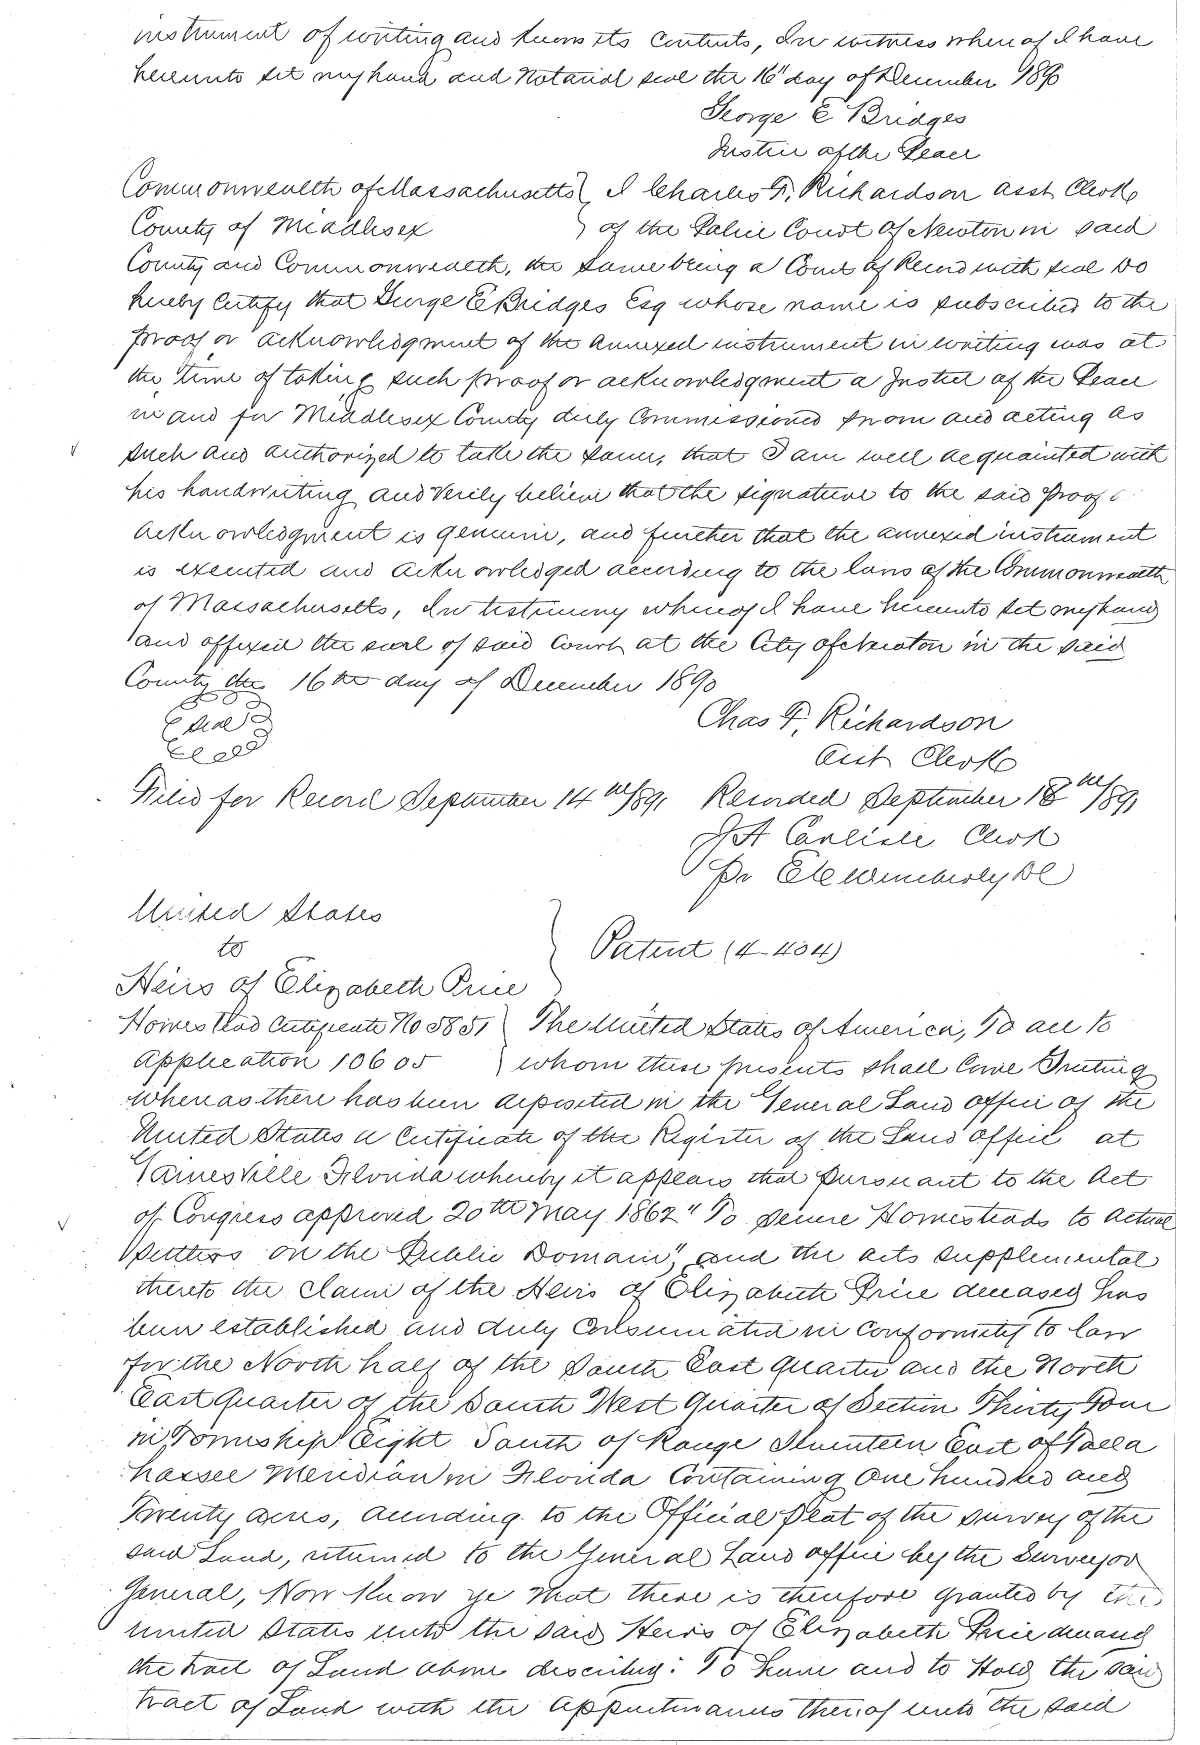 instrument of writing and know its contents, In witness where of I have
hereunto set my hand and Notarial seal the 16" day of December 1890
George E Bridges
Justice of the Peace
Commonwealth of Massachusetts } I Charles F. Richardson asst Clerk
County of Middlesex } of the Police Court of Newton in said
County and Commonwealth, the same being a Court of Record with seal Do
hereby Certify that George E Bridges Esq whose name is subscribed to the
proof or acknowledgment of the annexed instrument in writing was at
the time of taking such proof or acknowledgment a Justice of the Peace
in and for Middlesex County duly Commissioned sworn and acting as
such and authorized to take the same, that I am well acquainted with
his handwriting and verily believe that the signature to the said proof
acknowledgment is genuine, and further that the annexed instrument
is executed and acknowledged according to the laws of the Commonwealth
of Massachusetts, In testimony whereof I have hereunto set my hand
and affixed the seal of said Court at the City of Newton in the said
County the 16th day of December 1890
Seal
Chas F. Richardson
Asst Clerk
Filed for Record September 14th/891 Recorded September 18th/891
J A Carlisle Clerk
Pr Wimberly DC
United States
to } Patent (4-404)
Heirs of Elizabeth Price
Homestead Certificate No 5851 } The United States of America, To all to
Application 10605 } whom these presents shall Come Greeting
whereas there has been deposited in the General Land office of the
United States a Certificate of the Register of the Land office at
Gainesville Florida whereby it appears that pursuant to the Act
of Congress approved 20th May 1862 "To secure Homesteads to actual
settlers on the Public Domain", and the acts supplemental
thereto the claim of the Heirs of Elizabeth Price deceased has
been established and duly Consumated in conformity to law
for the North half of the South East quarter and the North
East Quarter of the South West Quarter of Section Thirty Four
in Township Eight South of Range Seventeen East of Talla
hassee Meridian in Florida Containing One hundred and
Twenty acres, according to the Official Plat of the survey of the
said Land, returned to the General Land office by the Surveyor
General, Now Know ye that there is therefore granted by the
United States unto the said Heirs of Elizabeth Price deceased
the tract of Land above described: To have and to Hold the said
tract of Land with the appurtenances thereof unto the said